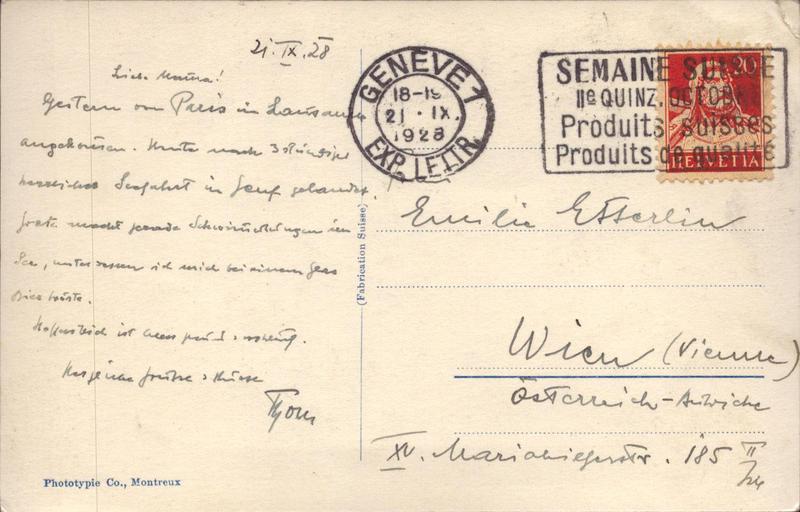 21. IX. 28
Liebe Mama!
Gestern von Paris in Lausanne
angekommen. Heute nach 3 stündiger
herrlicher Seefahrt in Genf gelandet.
macht gerade Schwimmübungen im
See, unterdessen ich mich bei einem Glas
Bier tröste.
Hoffentlich ist alles gesund & wohlauf.
Herzliche Grüsse & Küsse
GENÈVE 1
18-19
21 · IX.
1928
EXP. LETTR.
SEMAINE SUISSE
IIe QUINZ. OCTOBRE
Produits suisses
Produits de qualité
20
HELVETIA
(Fabrication Suisse)
Emilie Esserlin
Wien (Vienne)
Österreich - Autriche
XV. Mariahilferstr. 185 II/24
Phototypie Co., Montreux